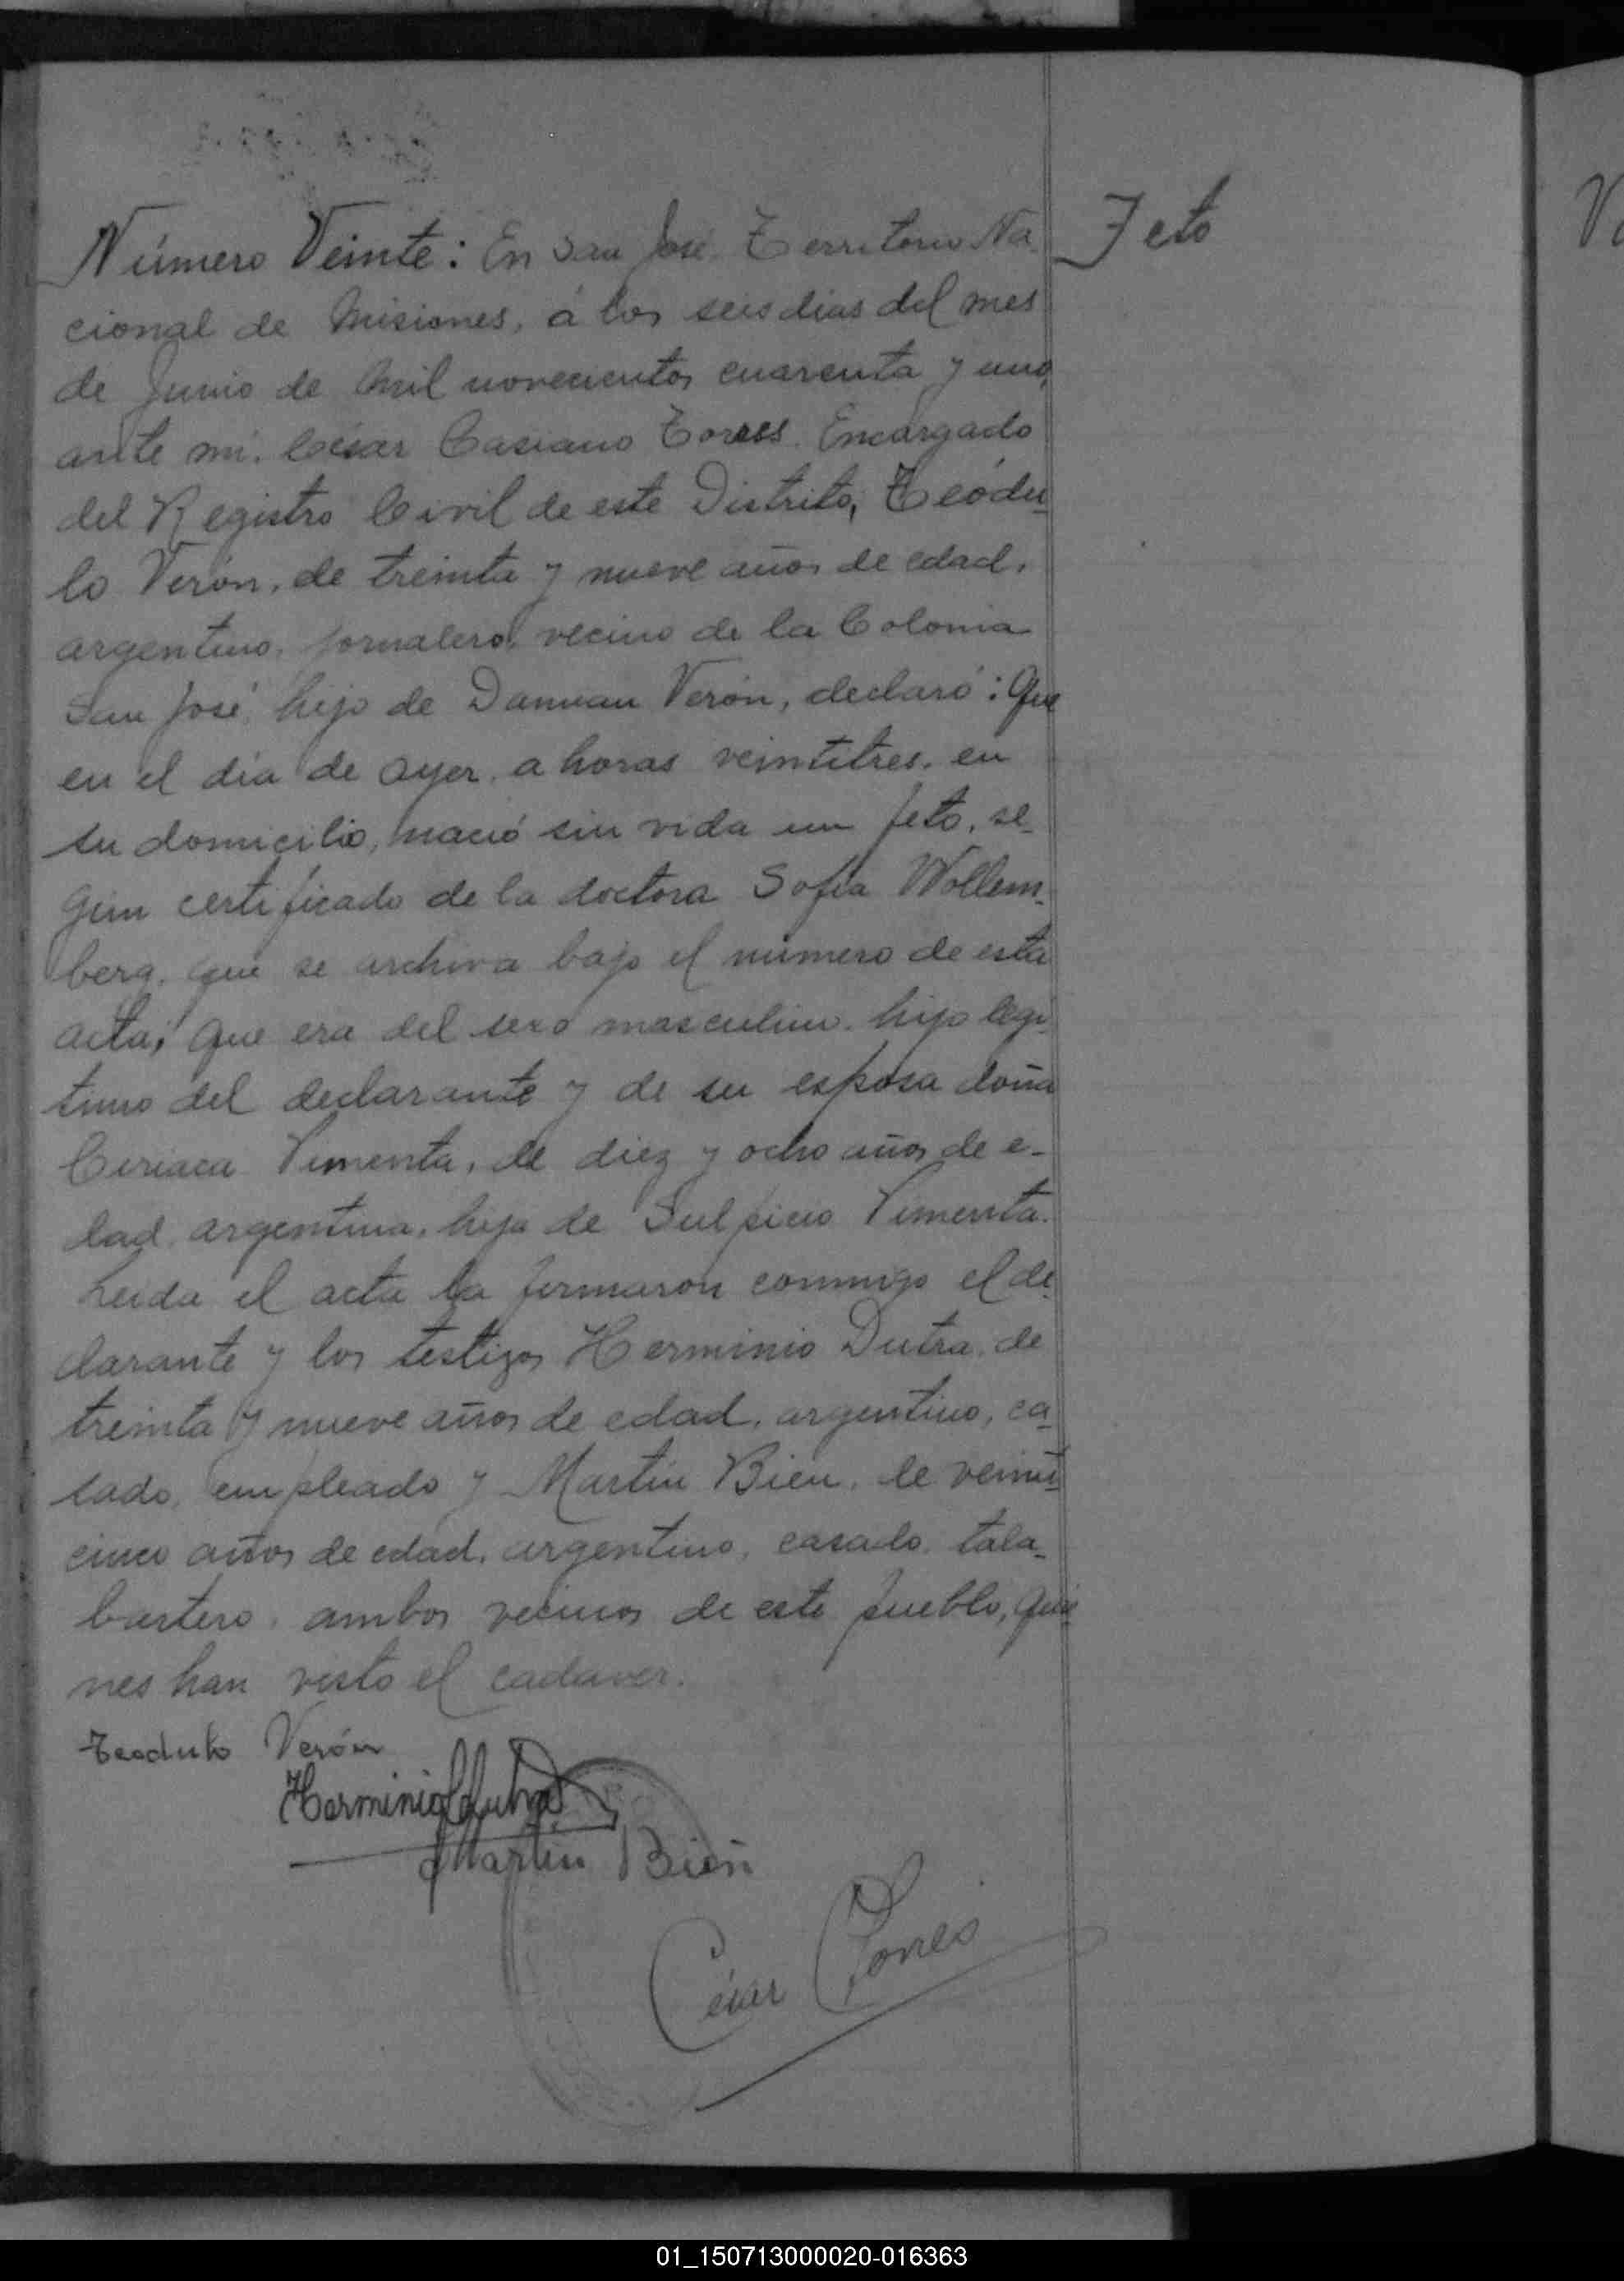 Número Veinte: En San José, Territorio Na-
Feto
cional de Misiones, á los seis dias del mes
de Junio de mil novecientos cuarenta y uno,
ante mí, César Casiano Torres, Encargado
del Registro Civil de este Distrito, Teódu-
lo Verón, de treinta y nueve años de edad,
argentino, jornalero, vecino de la Colonia
San José, hijo de Verón, declaró: Que
en el día de ayer, a horas veintitres, en
su domicilio, nació sin vida un feto, se-
gún certificado de la doctora Sofía Wollem-
berg, que se archiva bajo el número de esta
acta; que era del sexo masculino, hijo legí-
timo del declarante y de su esposa doña
Ciriaca Pimenta, de diez y ocho años de e-
dad, argentina, hija de Sulpicio Pimenta.
Leida el acta la firmaron conmigo el de-
clarante y los testigos Herminio Dutra, de
treinta y nueve años de edad, argentino, ca-
sado, empleado y Martín Bien, de veinti-
cinco años de edad, argentino, casado, tala-
bartero, ambos vecinos de este pueblo, quie-
nes han visto el cadaver.
Teodulo Verón
Herminio Dutra
Martin Bien
César Torres
01_150713000020-016363